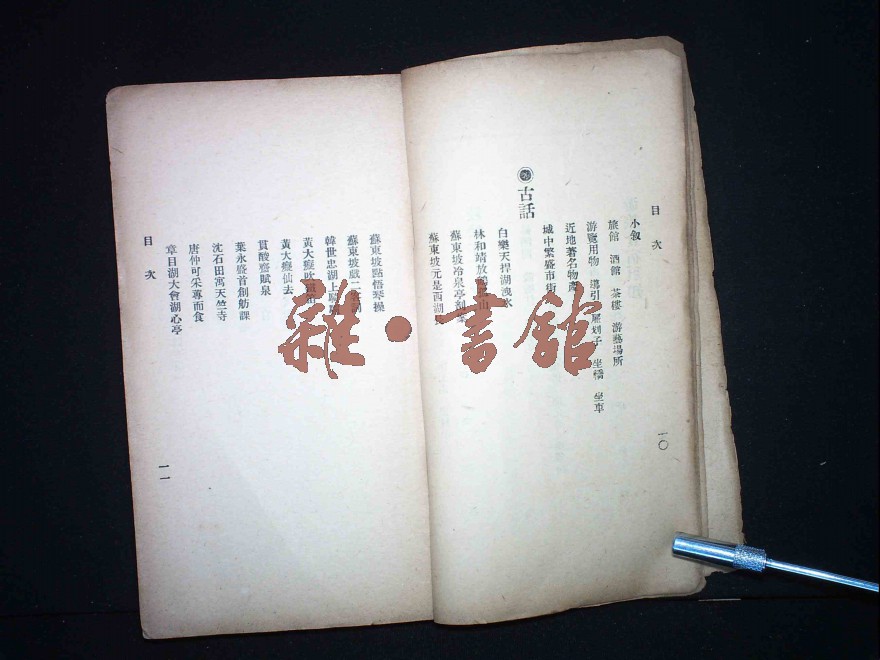 目次
小叙
旅館 酒館 茶樓 游藝場所
游覽用物 導引 雇划子 坐橋 坐車
近地著名物產
城中繁盛市街
古話
白樂天捍湖
林和靖放鶴 山
蘇東坡冷泉亭
蘇東坡元是西湖
一〇
蘇東坡點悟琴操
蘇東坡戲二
韓世忠湖上
黃大癡吹鐵笛
黃大癡仙去
貫酸齋賦泉
葉永盛首創舫課
沈石田寓天竺寺
唐仲可采蓴而食
章目湖大會湖心亭
目次
一一
雜·書館